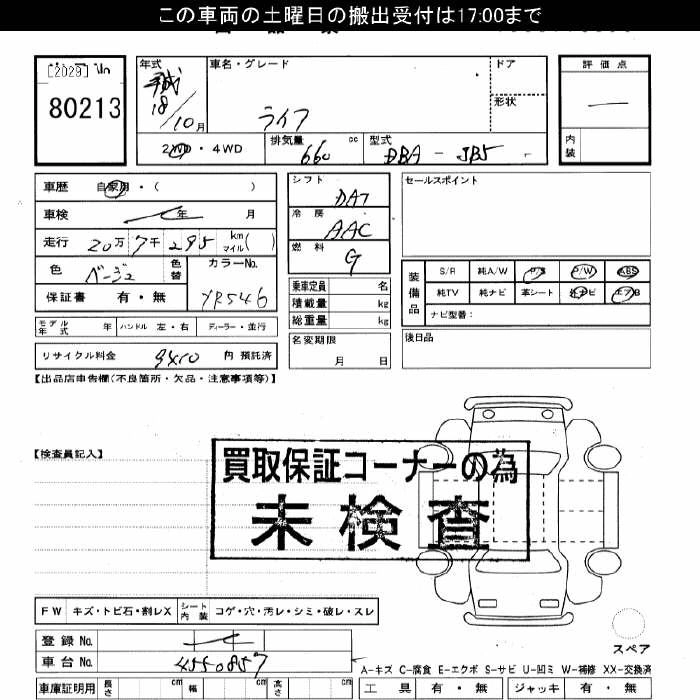 この車両の土曜日の搬出受付は17:00まで
[2029]
80213
年式
平成
18/10月
車名・グレード
ライフ
ドア
形状
評価点
内装
2WD・4WD
排気量 660 cc
型式 DBA - JB5
車歴 自家用・( )
車検 年 月
走行 20万7千295 km マイル( )
色 ベージュ 色替
カラーNo. YR546
保証書 有・無
シフト DAT
冷房 AAC
燃料 G
乗車定員 名
積載量 kg
総重量 kg
セールスポイント
装備品
S/R 純A/W P/S P/W ABS
純TV 純ナビ 革シート 社ナビ エアB
ナビ型番:
モデル年式 年 ハンドル 左・右 ディーラー・並行
名変期限 月 日
後日品
リサイクル料金 9410 円 預託済
【出品店申告欄(不良箇所・欠品・注意事項等)】
【検査員記入】
買取保証コーナーの為
未検査
FW キズ・トビ石・割レX シート内装 コゲ・穴・汚レ・シミ・破レ・スレ
スペア
登録No.
車台No. 4550857
A-キズ C-腐食 E-エクボ S-サビ U-凹ミ W-補修 XX-交換済
車庫証明用 長さ cm 幅 cm 高さ cm
工具 有・無 ジャッキ 有・無